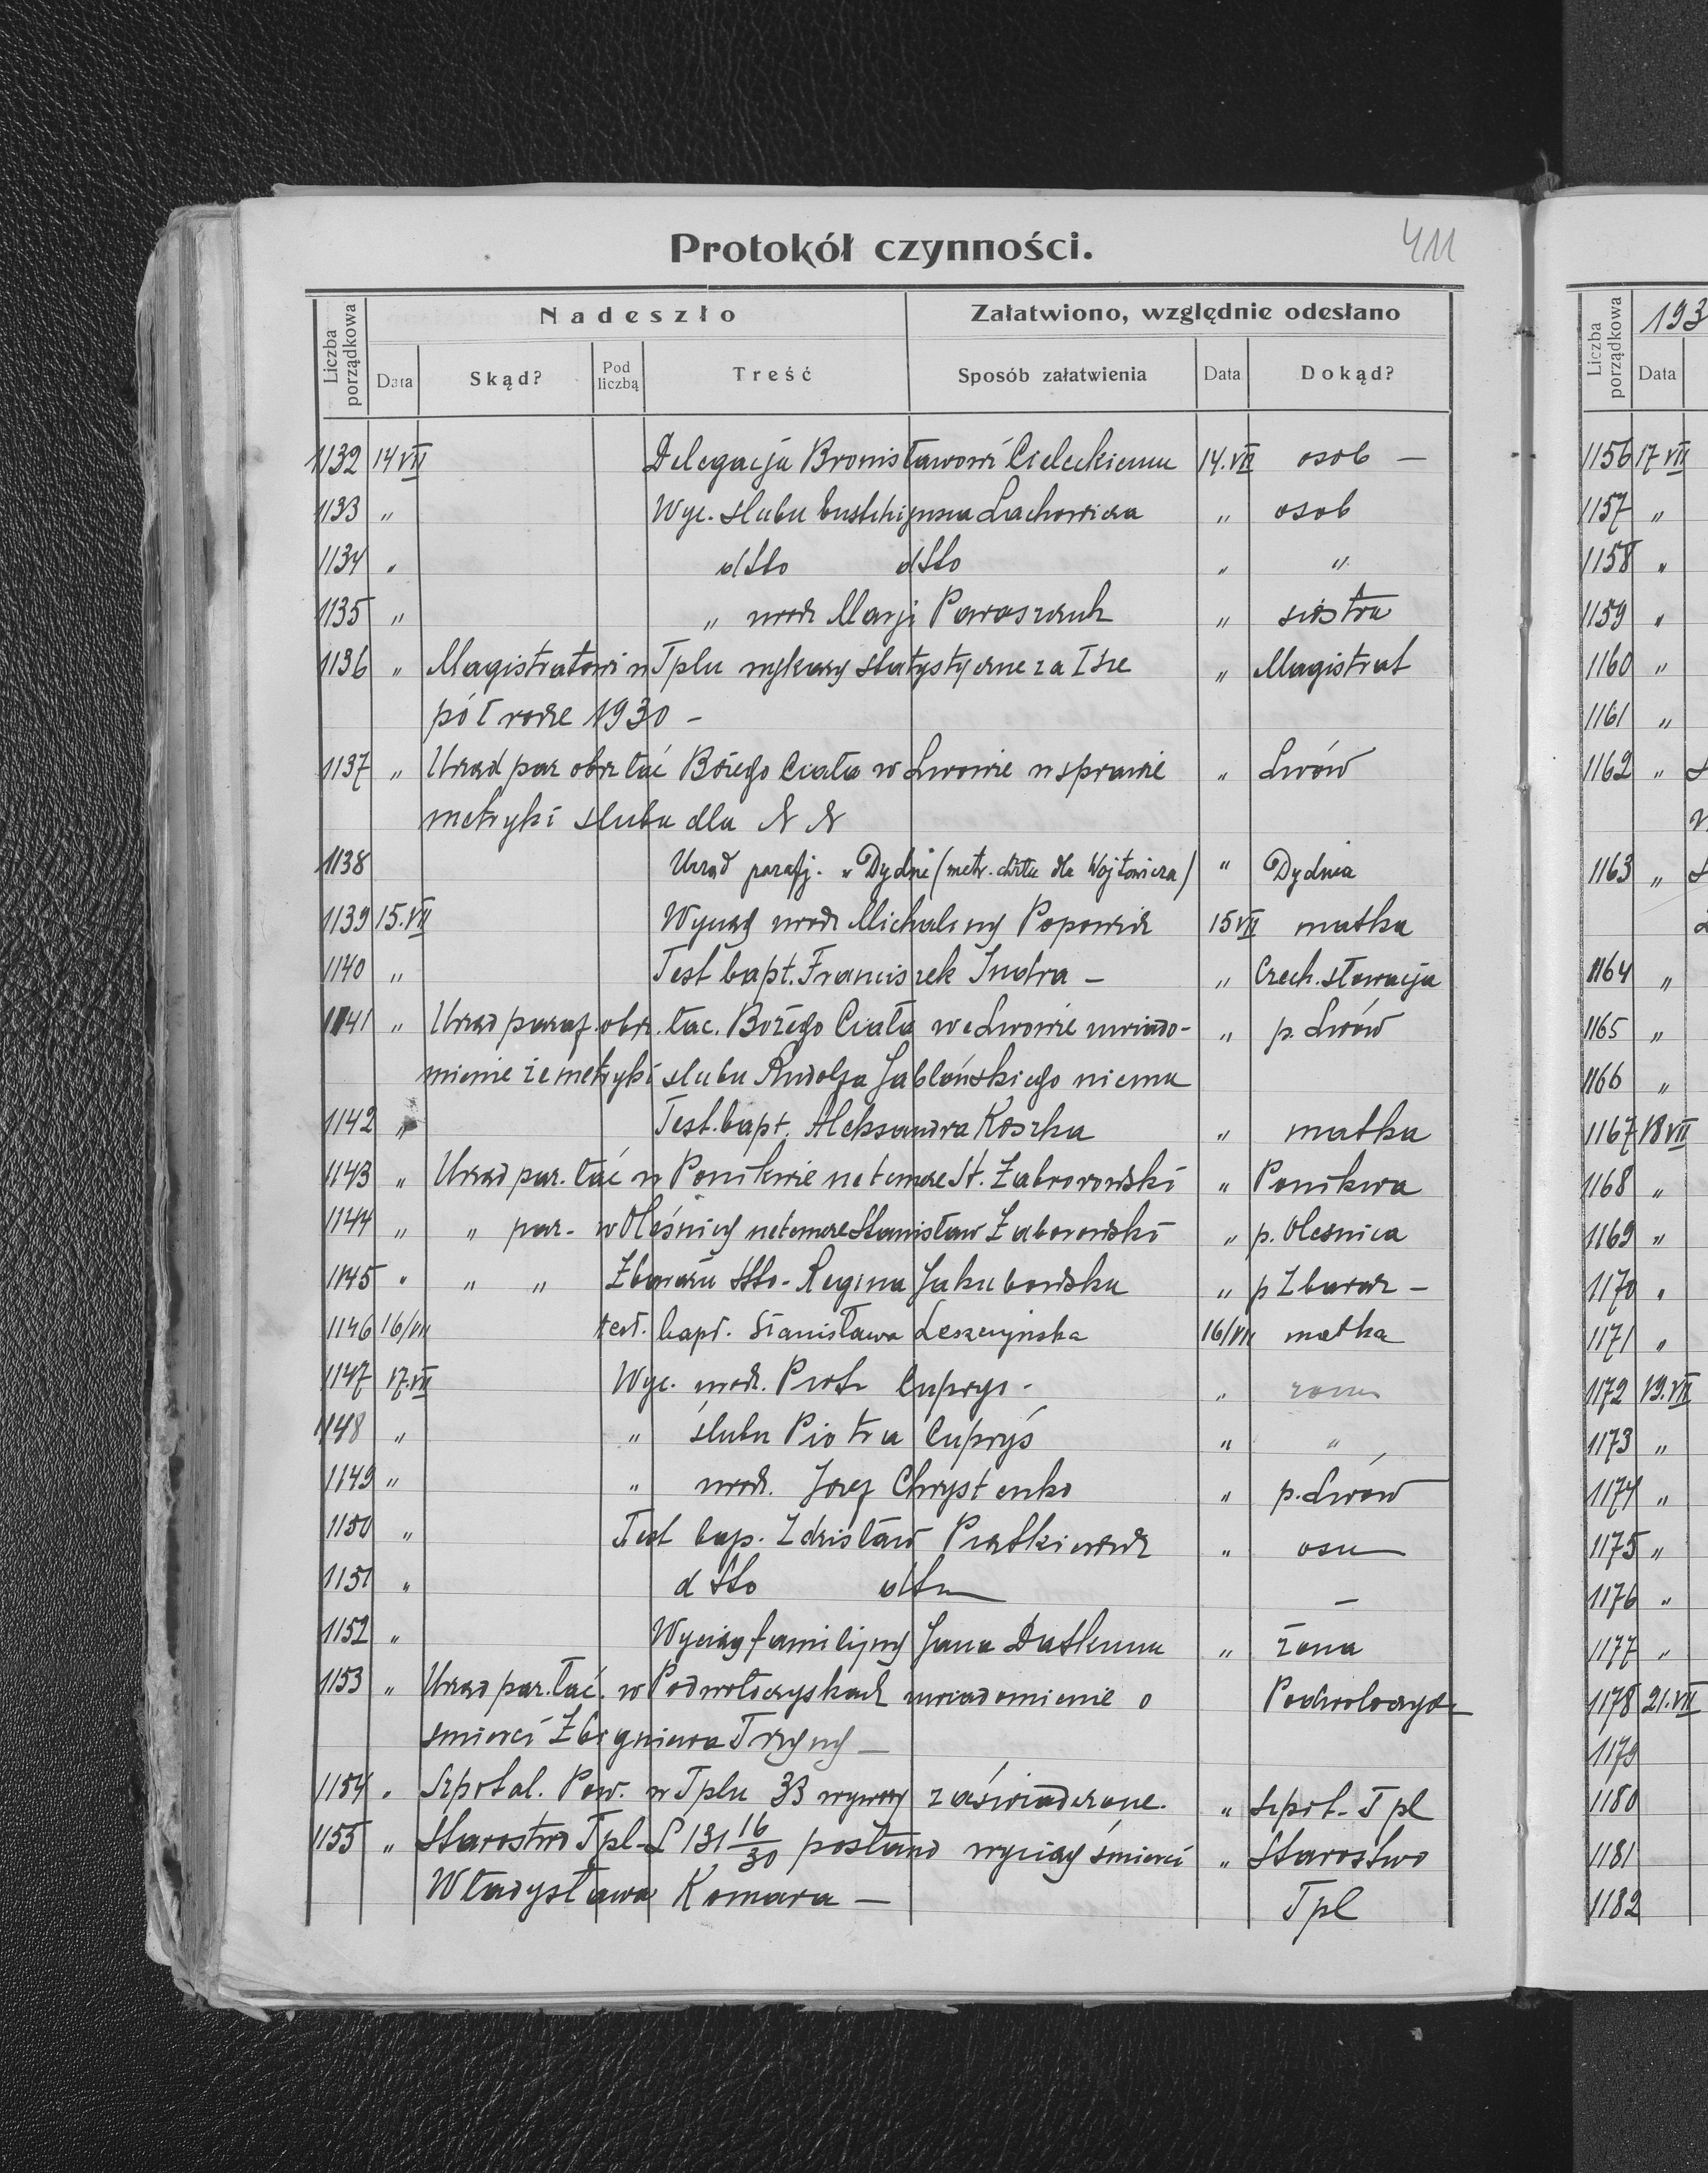 Protokół czynności.
411
Liczba porządkowa
Nadeszło
Załatwiono, względnie odesłano
Data
Skąd?
Pod liczbą
Treść
Sposób załatwienia
Data
Dokąd?
1132 14 VII Delegacja Bronisławowi Cieleckiemu 14.VII osob —
1133 " Wyc. slubu Lachowicza " osob
1134 " dtto dtto " "
1135 " " urodz Marji Paraszczuk " siostra
1136 " Magistratowi w Tplu wykazy statystyczne za I sze " Magistrat
półrocze 1930 —
1137 " Urząd par obrz łać Bożego Ciała w Lwowie w sprawie " Lwów
metryki slubu dla N N
1138 Urząd parafj. w Dydni (metr. chrztu dla Wojtowicza) " Dydnia
1139 15.VII Wyciąg urodz Michaliny Popowicz 15 VII matka
1140 " Test bapt. Franciszek Indra — " Czech. słowacja
1141 " Urząd paraf. obrz. łac. Bożego Ciała we Lwowie uwiado- " p. Lwów
mienie że metryki slubu Rudolfa Jabłońskiego niema
1142 " Test. bapt. Aleksandra Koszka " matka
1143 " Urząd par. łać w Ponikwie ne temere St. Zaborowski " Ponikwa
1144 " " par. w Oleśnicy ne temere Stanisław Zaborowski " p. Olesnica
1145 " " " Zbarażu dtto. Regina Jakubowska " p Zbaraż —
1146 16/VII test. bapt. Stanisława Leszczyńska 16/VII matka
1147 17.VII Wyc. urodz. Piotr Cupryś - "
1148 " " ślubu Piotra Cupryś " "
1149 " " urodz. Jozef Chrystenko " p. Lwow
1150 " Test bap. Zdzisław Piątkiewicz "
1151 " dtto dtto —
1152 " Wyciąg familijny Jana Datkuna " żona
1153 " Urząd par. łać. w Podwołoczyskach uwiadomienie o Podwołoczyska
smierci Zbigniewa Trzyny —
1154 " Szpital. Pow. w Tplu 33 zaświadczone. " Szpit. Tpl
1155 " Starostwo Tpl L 131 16/30 posłano wyciąg śmierci " Starostwo
Władysława Komara — Tpl
Liczba porządkowa
193
Data
1156 17 VII
1157 "
1158 "
1159 "
1160 "
1161 "
1162 "
1163 "
1164 "
1165 "
1166 "
1167 18 VII
1168 "
1169 "
1170 "
1171 "
1172 19.VII
1173 "
1174 "
1175 "
1176 "
1177 "
1178 21.VII
1179
1180
1181
1182